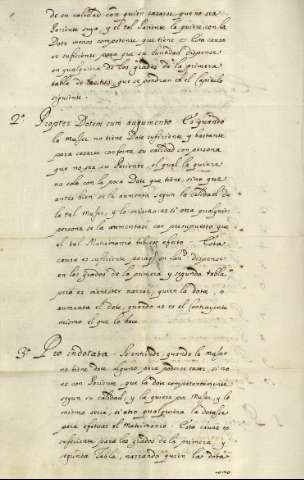 de su calidad con quien casarse, que no sea
Pariente suyo, y el tal Pariente la quiere con la
Dote menos competente que tiene: es esta causa
es suficiente para que su Santidad dispense
en qualquiera de los grados de la primera
tabla de que se pondran en el Capitulo
siguiente.
2º Propter Dotem cum augumento. Es quando
la Muger no tiene Dote suficiente y bastante
para casarse conforme su calidad con persona
que no sea su Pariente, el qual la quiere
no solo con la poca Dote que tiene, sino que
antes bien se la aumenta segun la calidad de
la tal Muger, y lo mismo es si otra qualquier
persona se la aumentase con presupuesto que
el tal Matrimonio tubiese efecto. Esta
causa es suficiente para que su Sand. dispense
en los grados de la primera y segunda tabla
pero es menester narrar, quien la dota, o
aumenta el dote, quando no es el contrayente
mismo el que lo hace.
3º Pro indotata. Se entiende, quando la muger
no tiene dote alguno, para poderse casar, si no
es con Pariente, que la dota competentemente
segun su calidad, y la quiere por Muger, y lo
mismo seria, si otro qualquiera la dotase
para efetuar el Matrimonio. Esta causa es
suficiente para los grados de la primera, y
segunda Tabla, narrando quien la dota